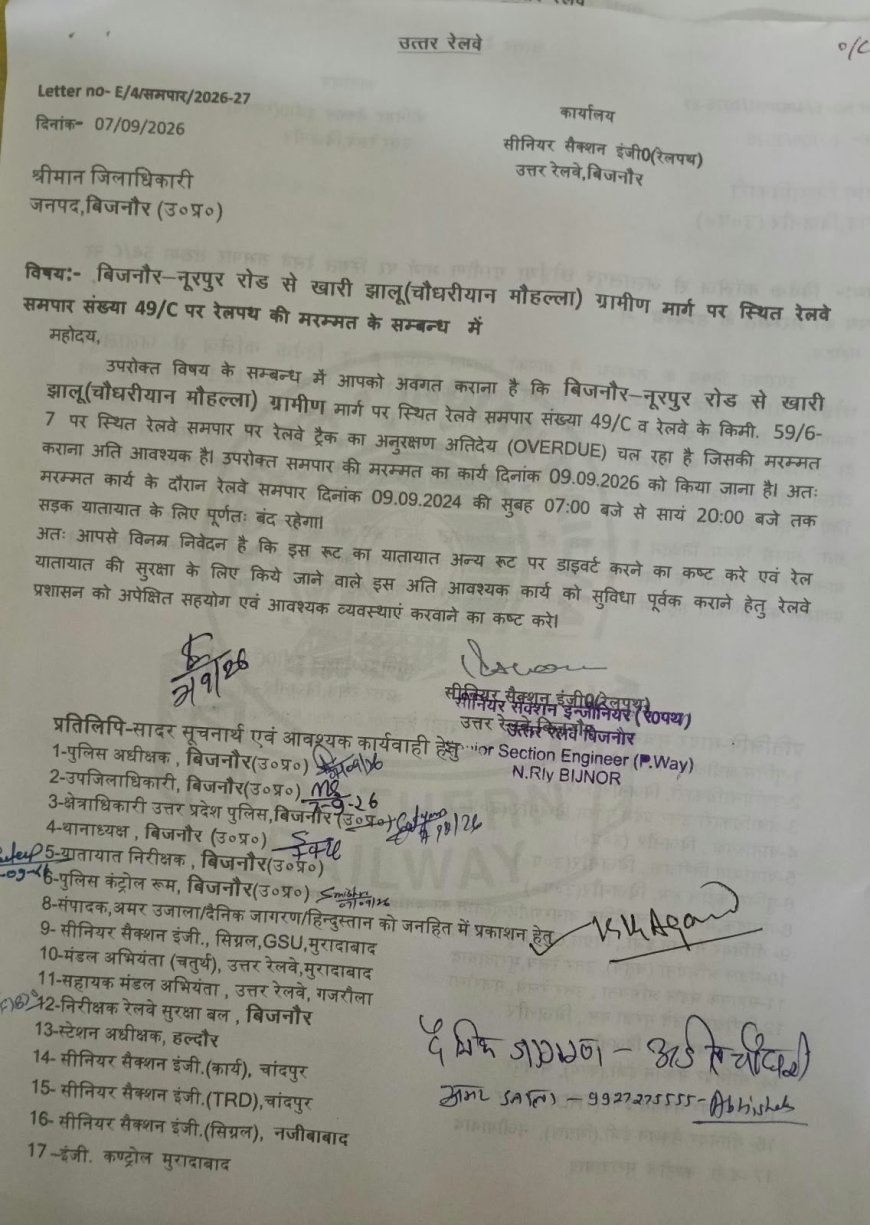 उत्तर रेलवे
O/C
Letter no- E/4/समपार/2026-27
दिनांक- 07/09/2026
कार्यालय
सीनियर सैक्शन इंजी0(रेलपथ)
उत्तर रेलवे,बिजनौर
श्रीमान जिलाधिकारी
जनपद,बिजनौर (उ०प्र०)
विषयः- बिजनौर–नूरपुर रोड से खारी झालू(चौधरीयान मौहल्ला) ग्रामीण मार्ग पर स्थित रेलवे
समपार संख्या 49/C पर रेलपथ की मरम्मत के सम्बन्ध में
महोदय,
उपरोक्त विषय के सम्बन्ध में आपको अवगत कराना है कि बिजनौर–नूरपुर रोड से खारी
झालू(चौधरीयान मौहल्ला) ग्रामीण मार्ग पर स्थित रेलवे समपार संख्या 49/C व रेलवे के किमी. 59/6-
7 पर स्थित रेलवे समपार पर रेलवे ट्रैक का अनुरक्षण अतिदेय (OVERDUE) चल रहा है जिसकी मरम्मत
कराना अति आवश्यक है। उपरोक्त समपार की मरम्मत का कार्य दिनांक 09.09.2026 को किया जाना है। अतः
मरम्मत कार्य के दौरान रेलवे समपार दिनांक 09.09.2024 की सुबह 07:00 बजे से सायं 20:00 बजे तक
सड़क यातायात के लिए पूर्णतः बंद रहेगा।
अतः आपसे विनम्र निवेदन है कि इस रूट का यातायात अन्य रूट पर डाइवर्ट करने का कष्ट करे एवं रेल
यातायात की सुरक्षा के लिए किये जाने वाले इस अति आवश्यक कार्य को सुविधा पूर्वक कराने हेतु रेलवे
प्रशासन को अपेक्षित सहयोग एवं आवश्यक व्यवस्थाएं करवाने का कष्ट करे।
सीनियर सैक्शन इंजी0(रेलपथ)
उत्तर रेलवे,बिजनौर
सीनियर सैक्शन इन्जीनियर (रे0पथ)
उत्तर रेलवे बिजनौर
Section Engineer (P.Way)
N.Rly BIJNOR
प्रतिलिपि-सादर सूचनार्थ एवं आवश्यक कार्यवाही हेतु
1-पुलिस अधीक्षक , बिजनौर(उ०प्र०)
2-उपजिलाधिकारी, बिजनौर(उ०प्र०)
7-9-26
3-क्षेत्राधिकारी उत्तर प्रदेश पुलिस,बिजनौर (उ०प्र०)
4-थानाध्यक्ष , बिजनौर (उ०प्र०)
5-यातायात निरीक्षक , बिजनौर(उ०प्र०)
6-पुलिस कंट्रोल रूम, बिजनौर(उ०प्र०)
8-संपादक,अमर उजाला/दैनिक जागरण/हिन्दुस्तान को जनहित में प्रकाशन हेतु
9- सीनियर सैक्शन इंजी., सिग्नल,GSU,मुरादाबाद
10-मंडल अभियंता (चतुर्थ), उत्तर रेलवे,मुरादाबाद
11-सहायक मंडल अभियंता , उत्तर रेलवे, गजरौला
12-निरीक्षक रेलवे सुरक्षा बल , बिजनौर
13-स्टेशन अधीक्षक, हल्दौर
14- सीनियर सैक्शन इंजी.(कार्य), चांदपुर
15- सीनियर सैक्शन इंजी.(TRD),चांदपुर
16- सीनियर सैक्शन इंजी.(सिग्नल), नजीबाबाद
17 –इंजी. कण्ट्रोल मुरादाबाद
दैनिक जागरण –
अमर उजाला – 9927275555- Abhishek